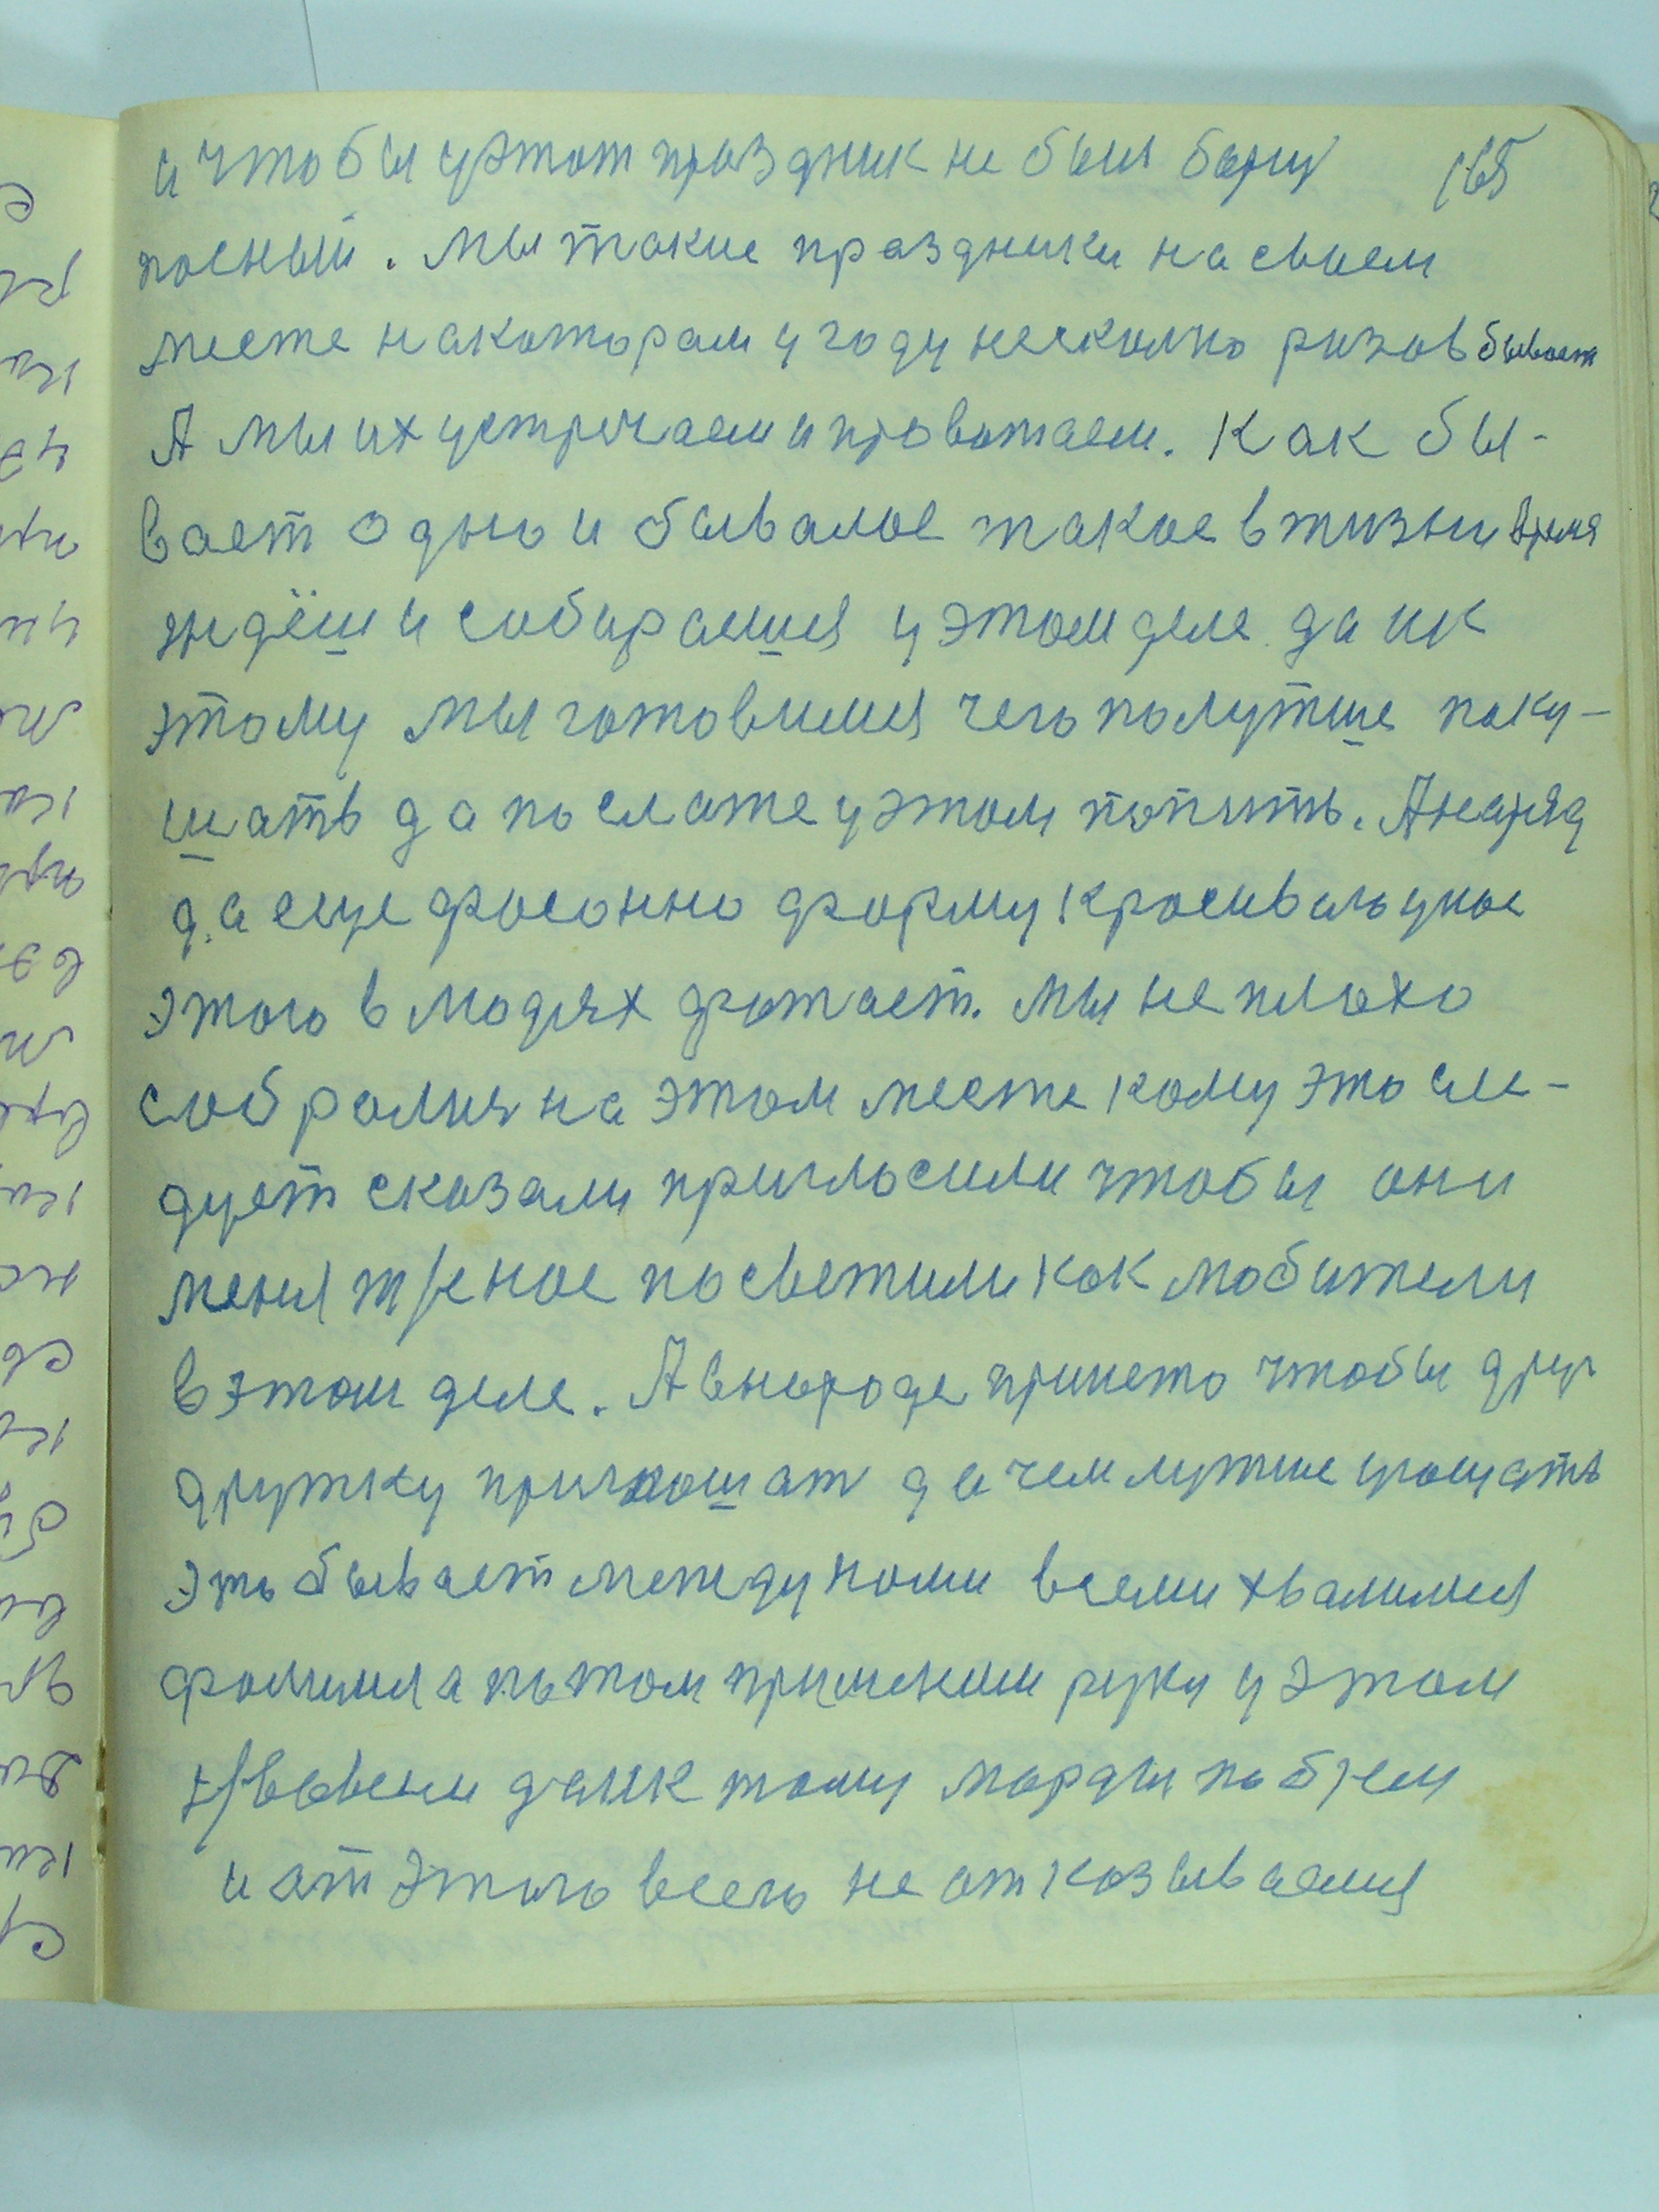 и чтобы уэтот праздник не был барц 165
посный. Мы такие праздники насвоем
месте накоторам у году несколко разов бывает
А мы их устречаем и проважаем. Как бы-
вает одно и бывалое такое в жизни время
ждёш и собираешся у этом деле да ик
этому мы готовимся чего полутше поку-
шать да послаже уэтом попить. А наряд
да еще фасонно форму красивольуное
этого в людях хватает. Мы не плохо
собрались на этом месте кому это сле-
дует сказали пригласили чтобы они
меня т/еное посветили как любители
в этом деле. А внароде принето чтобы друг
дружку приглошат да чем лутше угощать
это бывает между нами всеми хвалимся
фалимся а потом применим руки у этом
даик тому морды побjем
и ат этого всего не отказываемся